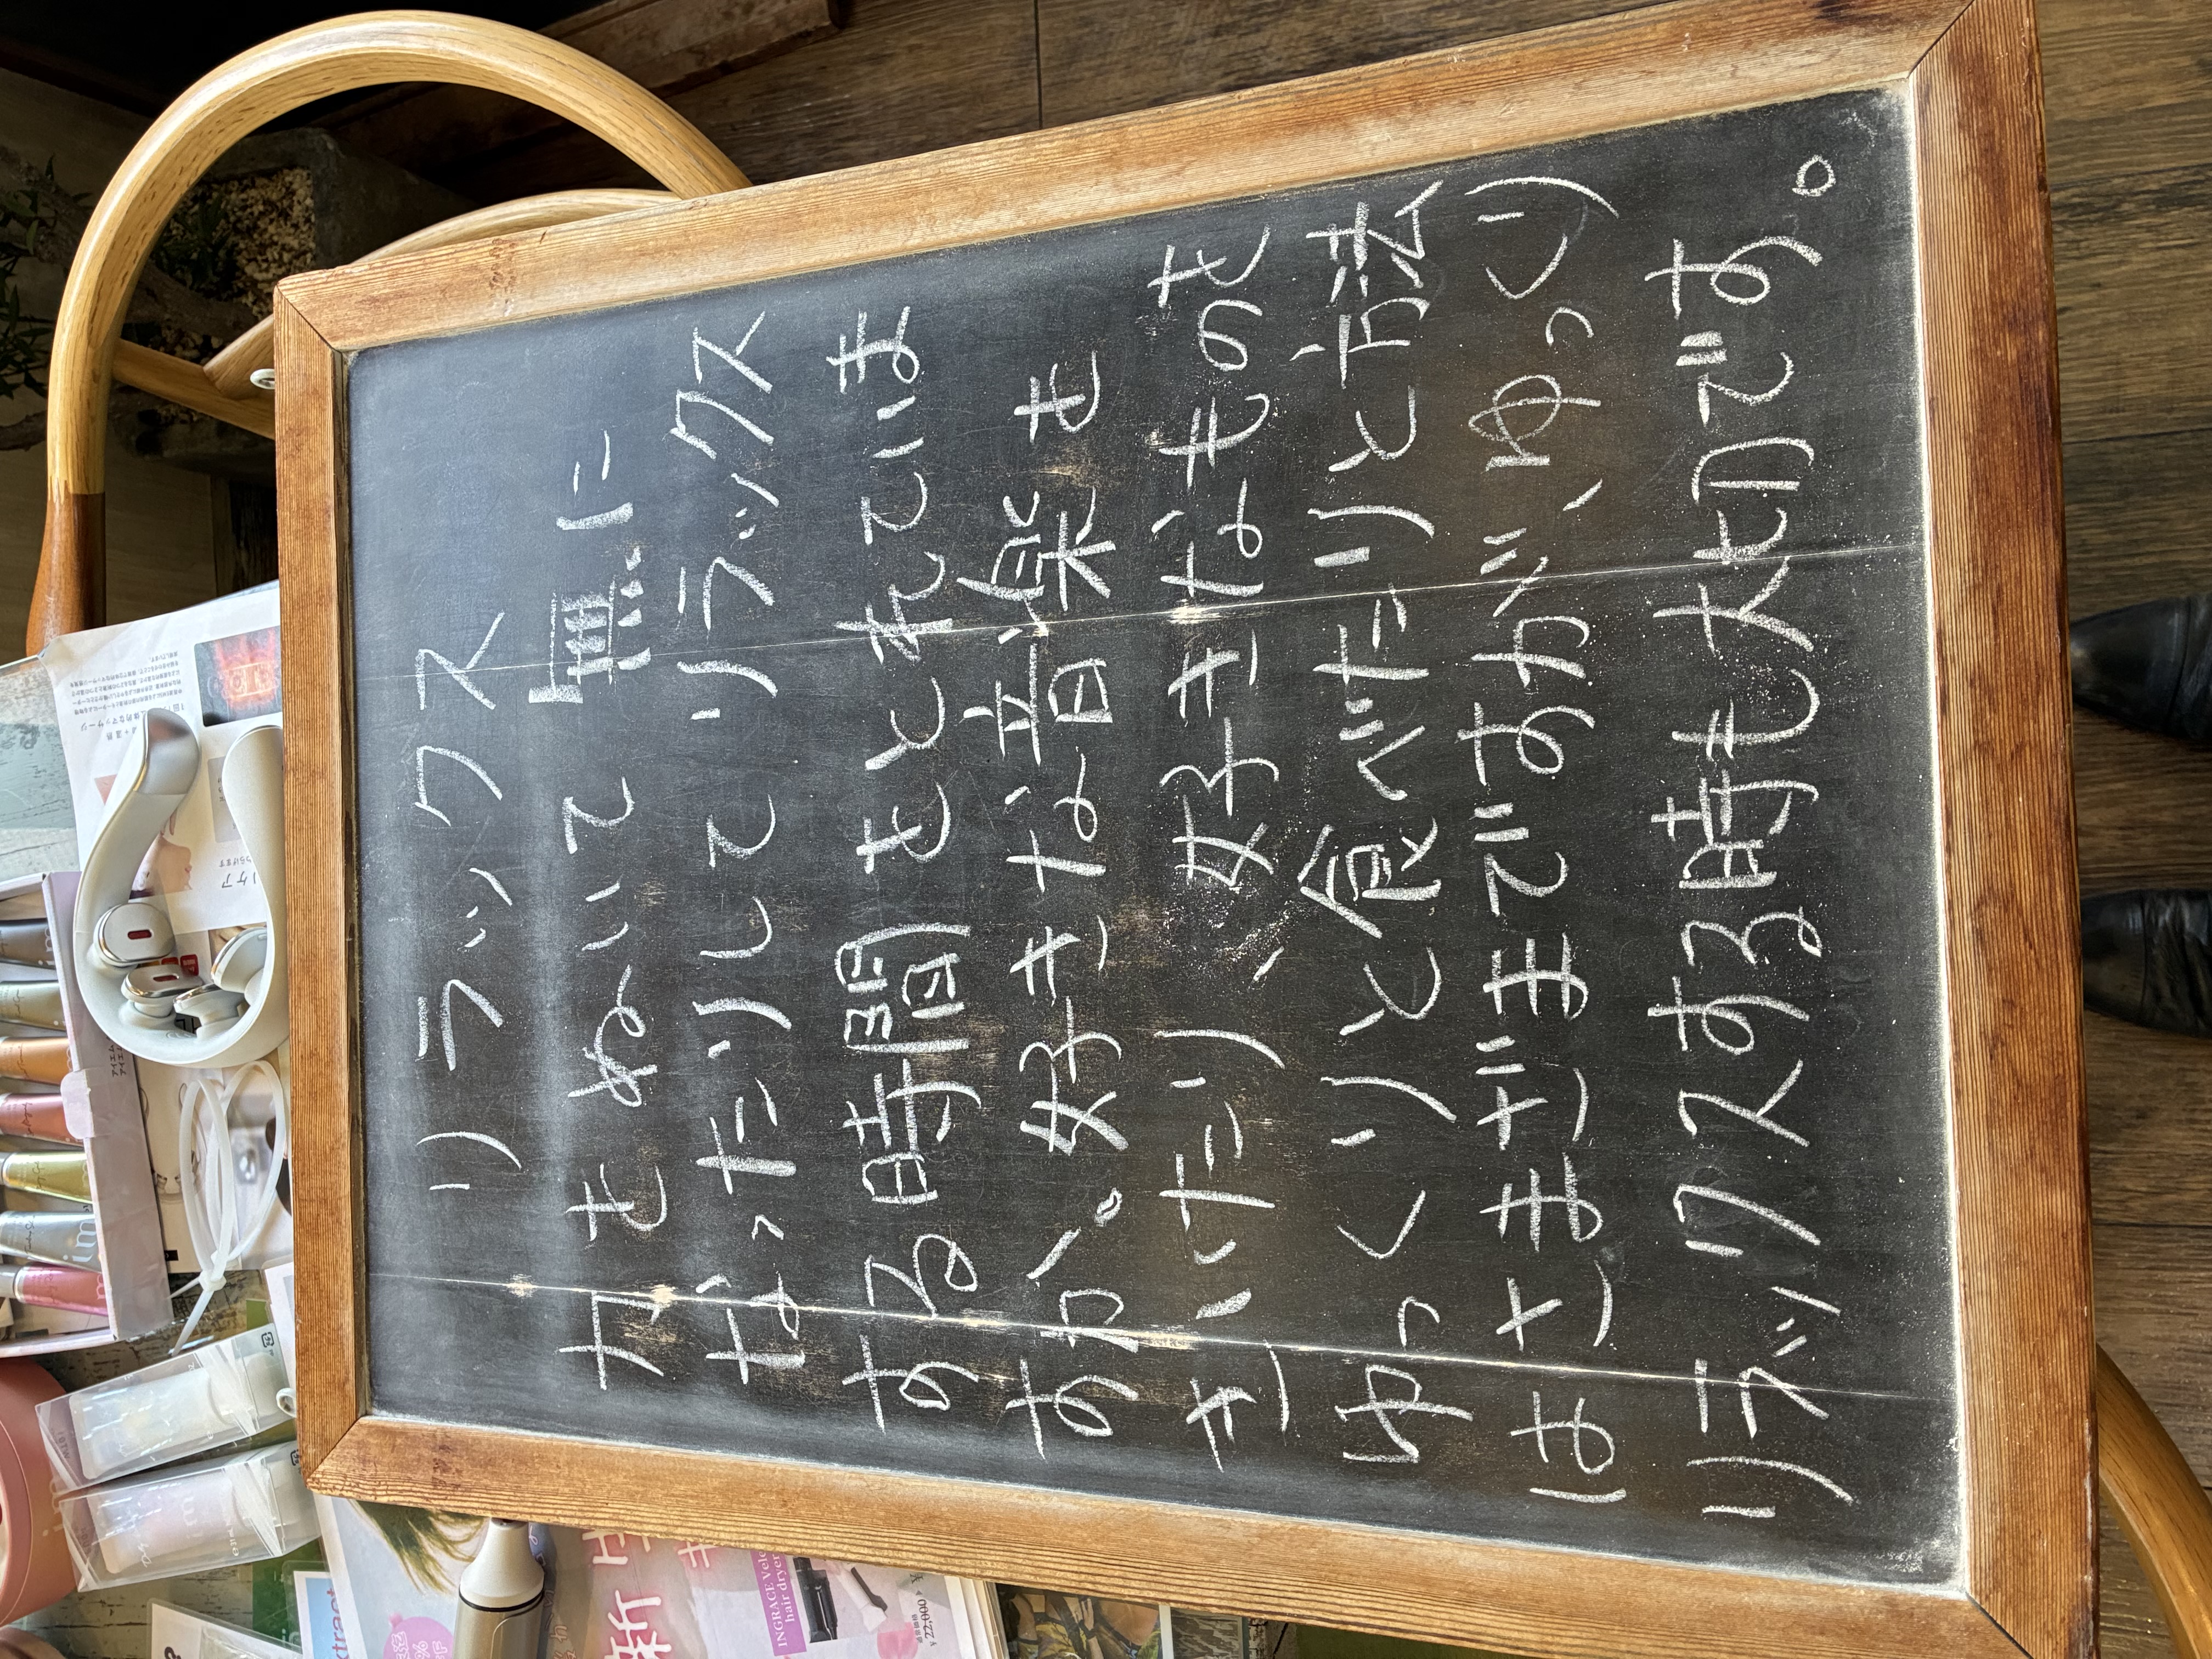 リラックス
力をぬいて 無に
なったりして リラックス
する時間をとれていま
すか。好きな音楽も
きいたり、好きなものを
ゆっくりと食べたりと方法
はさまざまですが、ゆっくり
リラックスする時も大切です。
INGRACE Velo
hair dryer
¥22,000
新